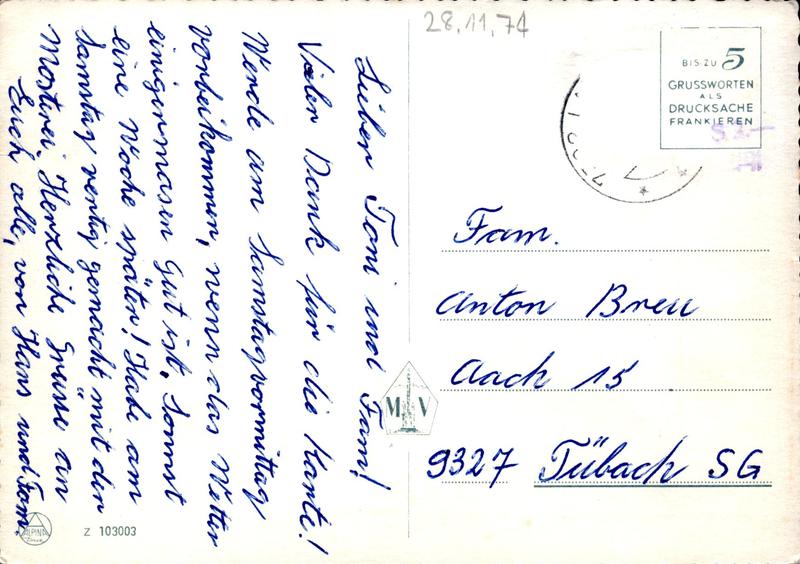 28.11.74
BIS ZU 5
GRUSSWORTEN
ALS
DRUCKSACHE
FRANKIEREN
Lieber Toni und Fam!
Vieler Dank für die Karte!
Werde am Samstagvormittag
vorbeikommen, wenn das Wetter
einigermasen Gut ist, Sonnst
eine Woche später! Habe am
Samstag vertig gemacht mit der
Mosterei. Herzliche Grüsse an
Euch alle, von Hans und Fam.
Fam.
Anton Breu
Aach 15
9327 Tübach SG
M V
ALPINA
Z 103003